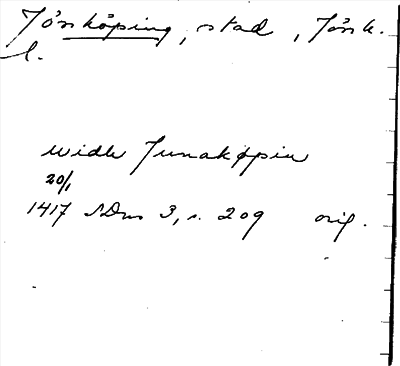 Jönköping, stad, Jönk.
l.
widh Junakøpin
20/1
1417 SDns 3, s. 209 orig.